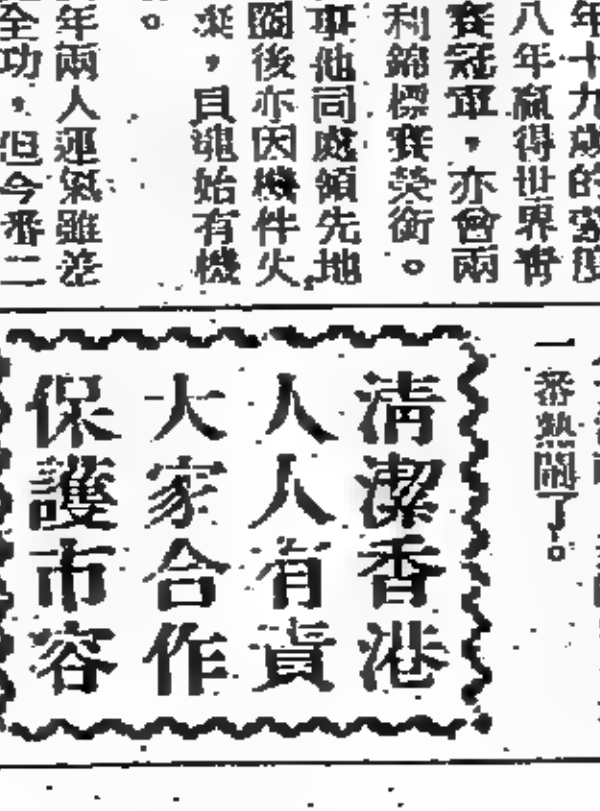 年十九歲的
八年贏得世界青
賽冠軍，亦會兩
利錦標賽榮銜。
事他同處領先地
圈後亦因機件火
，貝魂始有機
。
年兩人運氣雖差
全功，但今番二
一番熱鬧了。
清潔香港
人人有責
大家合作
保護市容